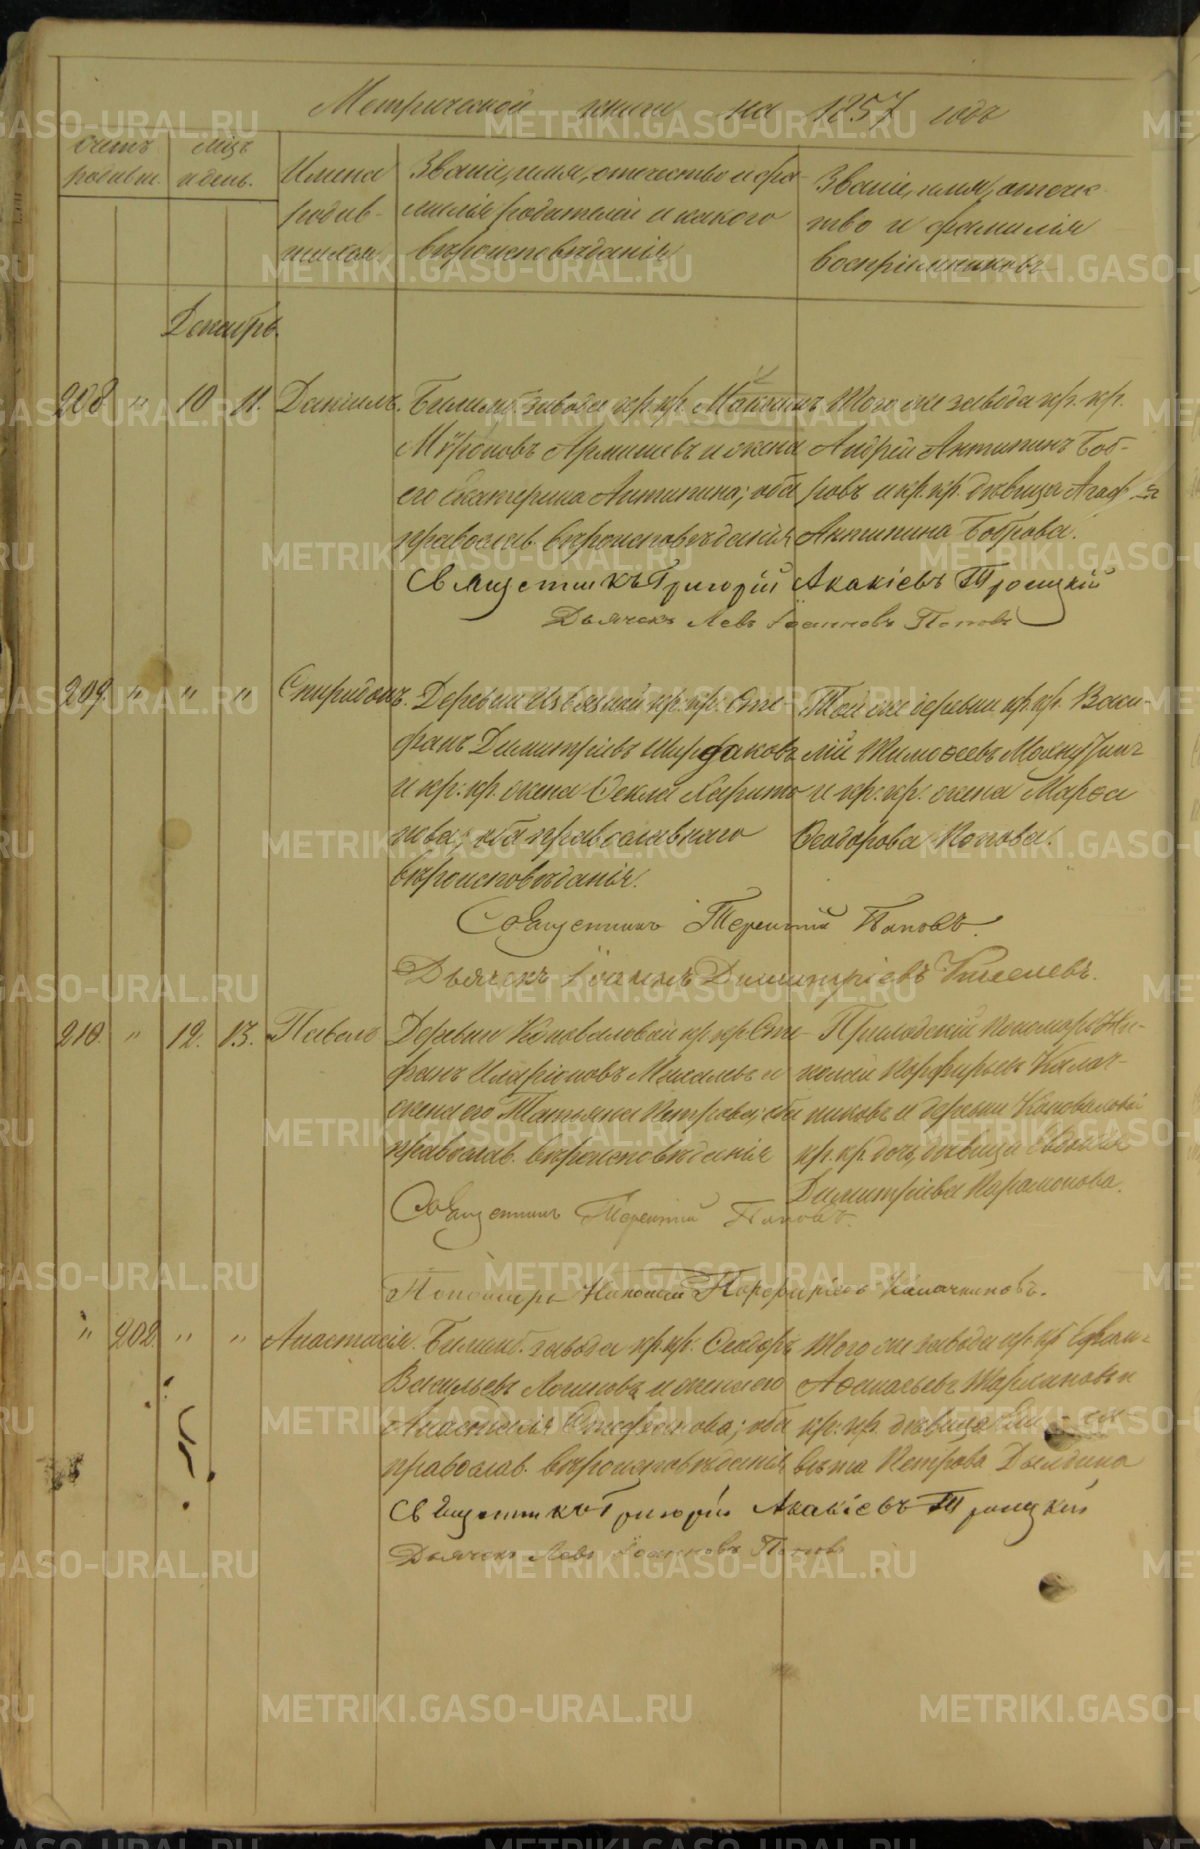 Метрической книги на 1857 годъ
Счетъ родивш.
Мѣц. и день.
Имена родив-шихся.
Званіе, имя, отечество и фа-
милія родителей и какого
вѣроисповѣданія
Званіе, имя, отечес-
тво и фамилія
воспріемниковъ
Декабрь.
208 " 10 11. Даніилъ.
Билимб. завода кр. кр.
Мѵроновъ и жена
его Екатерина Антипина; оба
православ. вѣроисповѣданія
Того же завода кр. кр.
Андрей Антипинъ Боб-
ровъ и кр. кр. дѣвица Агаф-я
Антипина Боброва.
Священникъ Григорій Акакіевъ Троицкій
Дьячекъ Левъ Іоанновъ Поповъ
209. " " " Спиридонъ.
Деревни кр. кр. Сте-
фанъ Димитріевъ
и кр. кр. жена Ѳекла Харито-
нова; оба православнаго
вѣроисповѣданія.
Той же деревни кр. кр. Васи-
лій Тимоѳеевъ
и кр. кр. жена Марѳа
Ѳеодорова Попова.
Священникъ Терентій Поповъ.
Дьячекъ Іоаннъ Димитріевъ Киселевъ.
210. " 12. 13. Павелъ
Деревни Коноваловой кр. кр. Сте-
фанъ Иларіоновъ Михалевъ и
жена его Татьяна Петрова; оба
православ. вѣроисповѣданія
Приходскій Пономарь Ни-
колай Порфирьевъ Калач-
никовъ и деревни Коноваловой
кр. кр. дочь, дѣвица Евдокія
Димитріева Парамонова.
Священникъ Терентій Поповъ.
Пономарь Николай Порфиріевъ Калачниковъ.
" 202. " " Анастасія.
Билимб. завода кр. кр. Ѳеодоръ
Васильевъ Логиновъ и жена его
Анастасія Стефанова; оба
православ. вѣроисповѣданія
Того же завода кр. кр. Ефим-
Аѳанасьевъ и
кр. кр. дѣвица Ели-
вѣта Петрова Дылдина
Священникъ Григорій Акакіевъ Троицкій
Дьячекъ Левъ Іоанновъ Поповъ
METRIKI.GASO-URAL.RU